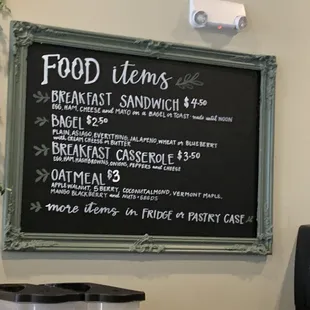 FOOD items
BREAKFAST SANDWICH $4.50
EGG, HAM, CHEESE and MAYO on A BAGEL or TOAST - made until NOON
BAGEL $2.50
PLAIN, ASIAGO, EVERYTHING, JALAPENO, WHEAT or BLUEBERRY
with CREAM CHEESE or BUTTER
BREAKFAST CASSEROLE $3.50
EGG, HAM, HASHBROWNS, ONIONS, PEPPERS and CHEESE
OATMEAL $3
APPLE WALNUT, 5 BERRY, COCONUT ALMOND, VERMONT MAPLE,
MANGO BLACKBERRY and NUTS + SEEDS
more items in FRIDGE or PASTRY CASE